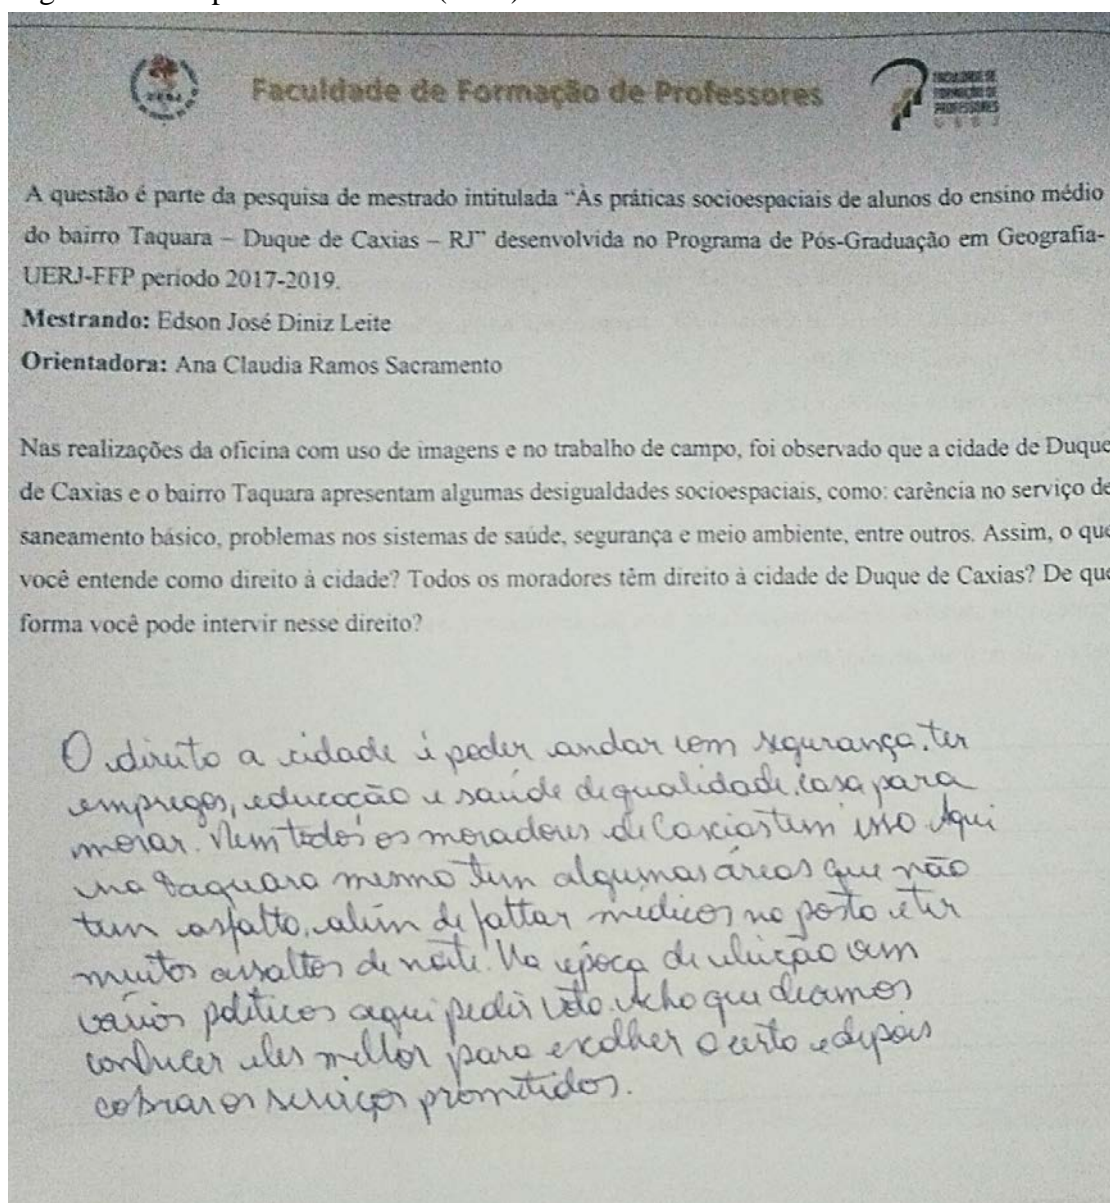 Faculdade de Formação de Professores
FACULDADE DE
FORMAÇÃO DE
PROFESSORES
U E R J
A questão é parte da pesquisa de mestrado intitulada “Às práticas socioespaciais de alunos do ensino médio
do bairro Taquara – Duque de Caxias – RJ” desenvolvida no Programa de Pós-Graduação em Geografia-
UERJ-FFP período 2017-2019.
Mestrando: Edson José Diniz Leite
Orientadora: Ana Claudia Ramos Sacramento
Nas realizações da oficina com uso de imagens e no trabalho de campo, foi observado que a cidade de Duque
de Caxias e o bairro Taquara apresentam algumas desigualdades socioespaciais, como: carência no serviço de
saneamento básico, problemas nos sistemas de saúde, segurança e meio ambiente, entre outros. Assim, o que
você entende como direito à cidade? Todos os moradores têm direito à cidade de Duque de Caxias? De que
forma você pode intervir nesse direito?
O direito a cidade é poder andar com segurança, ter
empregos, educação e saúde de qualidade, casa para
morar. Nem todos os moradores de Caxias tem isso. Aqui
na Taquara mesmo tem algumas áreas que não
tem asfalto, além de faltar medicos no posto e ter
muitos assaltos de noite. Na época de eleição vem
vários politicos aqui pedir voto. Acho que devemos
conhecer eles melhor para escolher o certo e depois
cobrar os serviços prometidos.